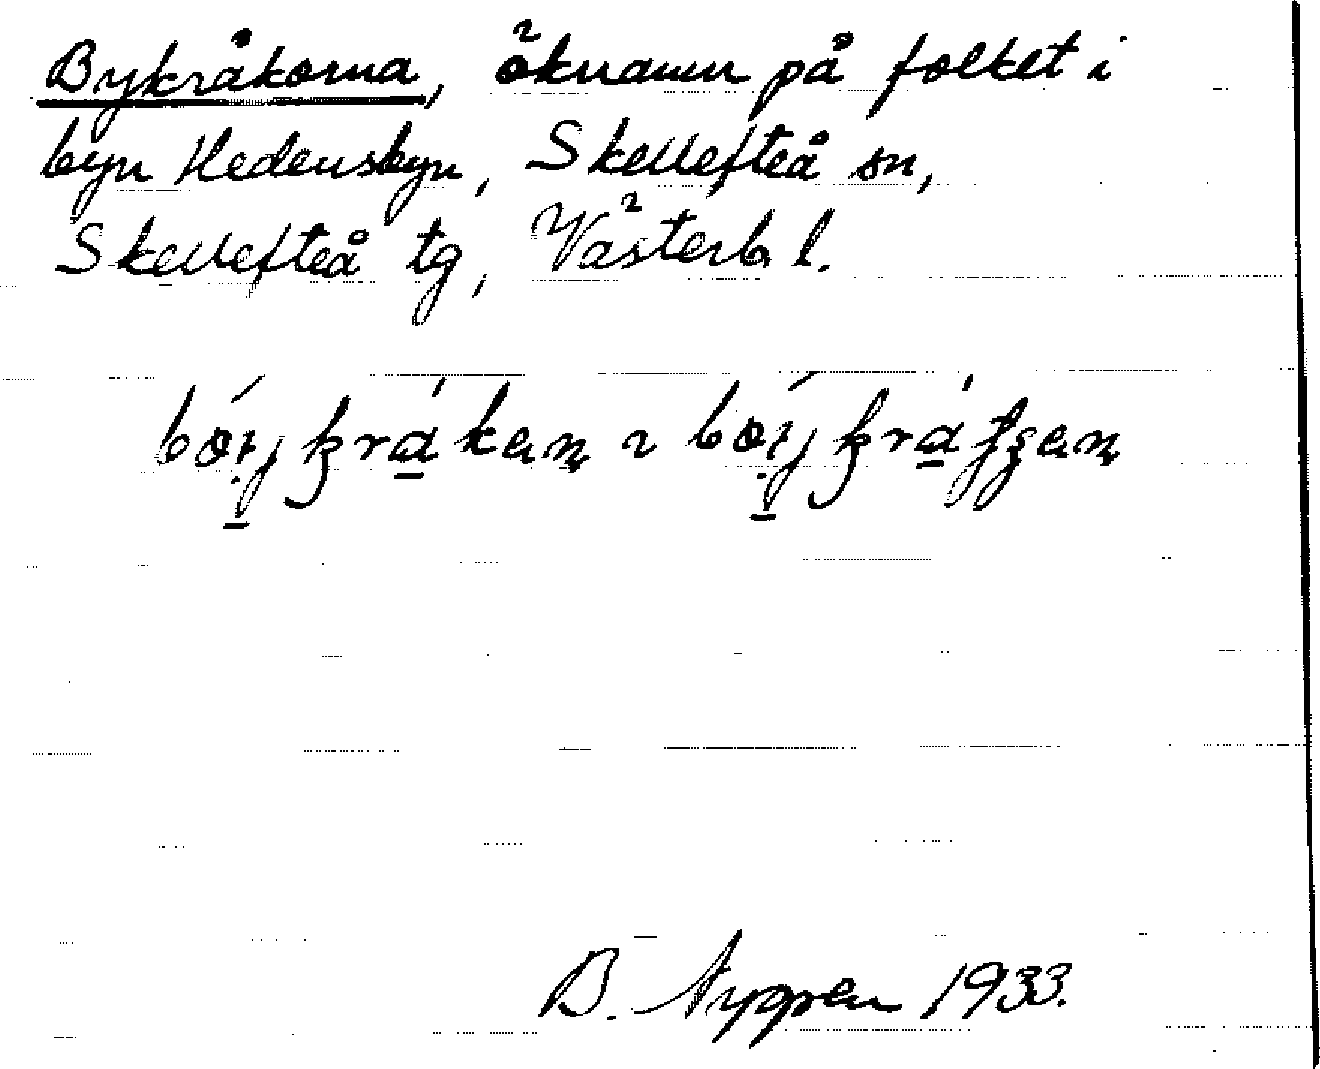 Bykråkorna, öknamn på folket i
byn Hedensbyn, Skellefteå sn,
Skellefteå tg, Västerb l.
B. Nygren 1933.